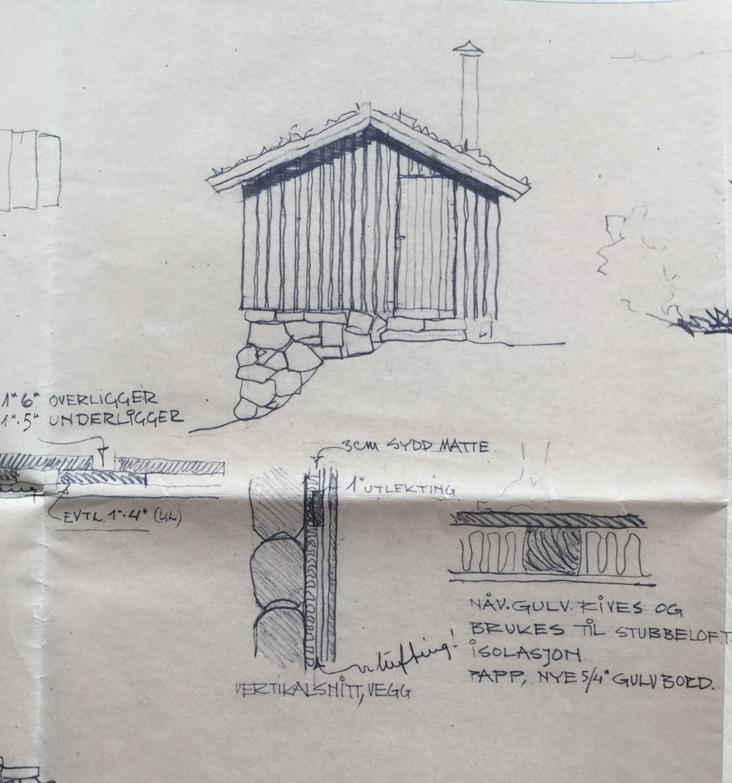 1" 6" OVERLIGGER
1".5" UNDERLIGGER
EVTL. 1".4" (UL)
3cm SYDD MATTE
1" UTLEKTING
lufting!
VERTIKALSNITT, VEGG
NÅV. GULV. RIVES OG
BRUKES TIL STUBBELOFT.
ISOLASJON
PAPP, NYE 5/4" GULVBORD.